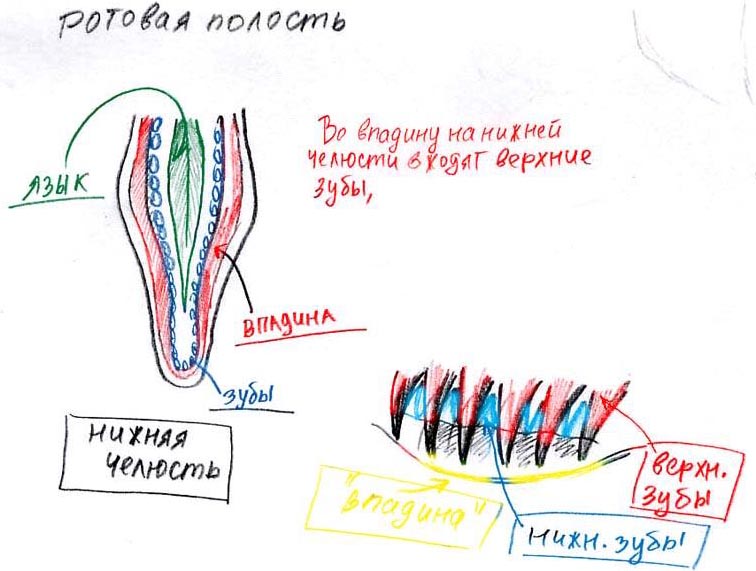 Ротовая полость
Во впадину на нижней
челюсти входят верхние
зубы,
язык
впадина
зубы
нижняя
челюсть
верхн.
зубы
"впадина"
нижн. зубы